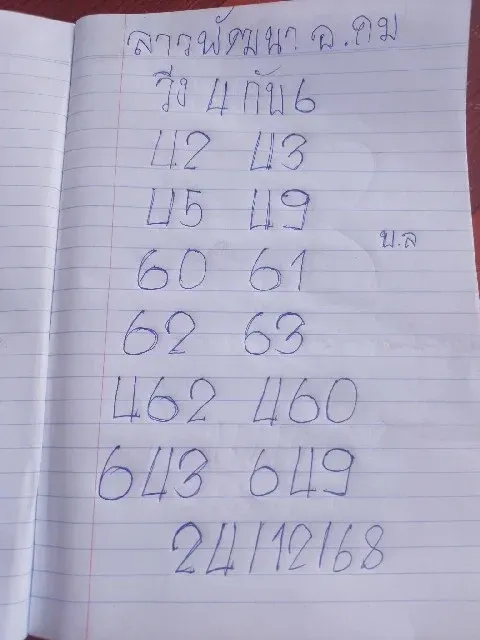 ลาวพัฒนา อ.คม
วิ่ง 4 กับ 6
42 43
45 49
บ.ล
60 61
62 63
462 460
643 649
24/12/68